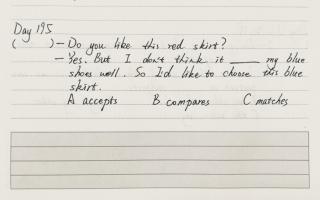 Day 195
( ) - Do you like this red skirt?
- Yes. But I don't think it ____ my blue
shoes well. So I'd like to choose this blue
skirt.
A accepts B compares C matches